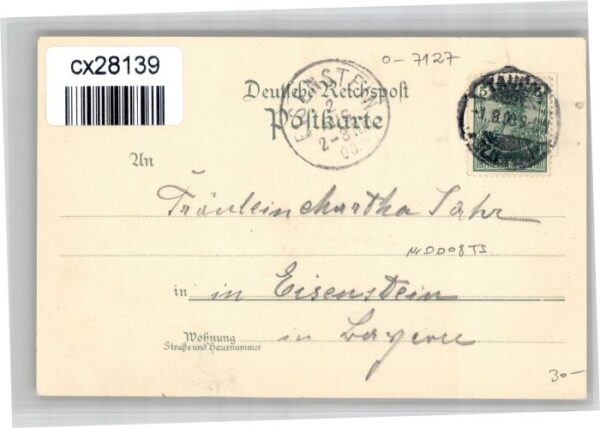 cx28139
0-7127
Deutsche Reichspost
Postkarte
EISENSTEIN
2
2-3
00.
5
1.8.00
An
Fräulein Martha Jahr
NrD008TS
in in Eisenstein
Wohnung
Straße und Hausnummer
in Bayern
30-